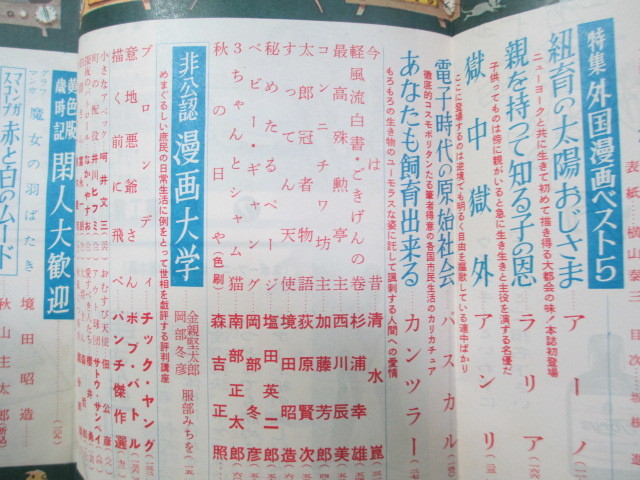 表紙・横山泰三
特集 外国漫画ベスト5
紐育の太陽おじさま アーノ
ニューヨークと共に生きて初めて描き得る大都会の味/本誌初登場
親を持つて知る子の恩 アラリア
子供ってものは傍に観がいると急に生き生きと主役を演ずる名優だ
獄中獄外 アンリ
ここに登場するのは逆境でも明るく自由を謳歌している連中ばかり
電子時代の原始社会 パスカル
徹底的コスモポリタンたる筆者得意の各国市民生活のカリカチュア
あなたも飼育出来る カンツラー
もろもろの生き物のユーモラスな姿に託して諷刺する人間への愛情
今は昔 清水崑
軽風流白書・ごきげんの巻 杉浦幸雄
最高殊勲亭主 西川辰美
コンニチワ坊主 加藤芳郎
太郎冠者物語 荻原賢次
すってんてん天使 境田昭造
秘めたるページ 塩田英二郎
ベビー・ギャング 岡部冬彦
3ちゃんとシャム猫 南部正太郎
秋の日や(色刷) 森吉正照
非公認 漫画大学
金親堅太郎
岡部冬彦
服部みちを
めまぐるしい庶民の日常生活に例をとって世相を戯評する評判講座
ブロンディ チック・ヤング
意地悪爺さん ボブ・バトル
描く前に飛べ パンチ傑作選
小さなアベック 呵井文三
町の配役 井川ヒフミ
おむすび天使 佃公彦
サトウ・サンペイ
黄色版歳時記 閑人大歓迎
グラフ マンガ 魔女の羽ばたき 境田昭造
マンガスコープ 赤と白のムード 秋山庄太郎